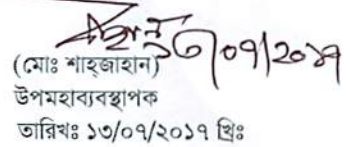 ১৩/০৭/২০১৭
(মোঃ শাহ্জাহান)
উপমহাব্যবস্থাপক
তারিখঃ ১৩/০৭/২০১৭ খ্রিঃ